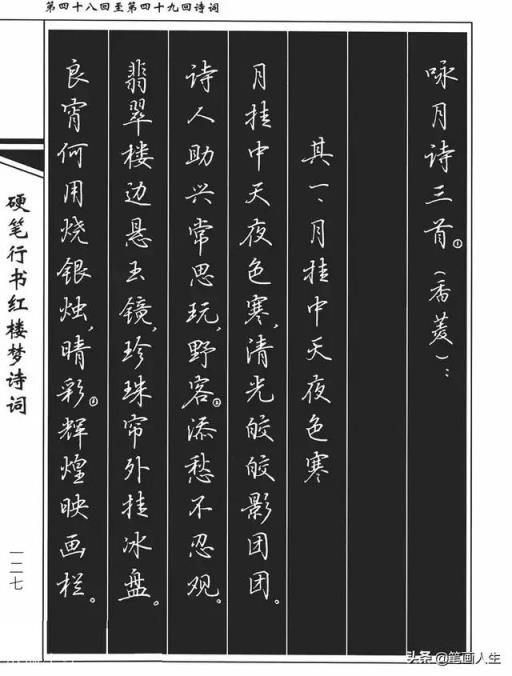 第四十八回至第四十九回诗词
咏月诗三首①(香菱):
其一、月挂中天夜色寒
月挂中天夜色寒,清光皎皎影团团。
诗人助兴常思玩,野客②添愁不忍观。
翡翠楼边悬玉镜,珍珠帘外挂冰盘。
良宵何用烧银烛,晴彩③辉煌映画栏。
硬笔行书红楼梦诗词
一二七
头条 @笔画人生